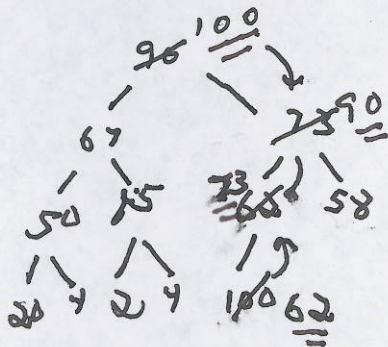 96 100
67 75 90
50 15 73 58
20 4 2 4 100 62